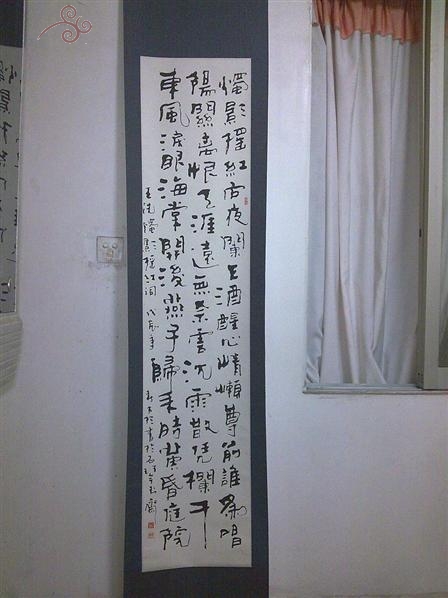 燭影搖紅向夜闌乍酒醒心情懶尊前誰為唱
陽關離恨天涯遠無奈雲沉雨散凭欄干
東風淚眼海棠開後燕子歸來時黃昏庭院
王詵燭影搖紅詞